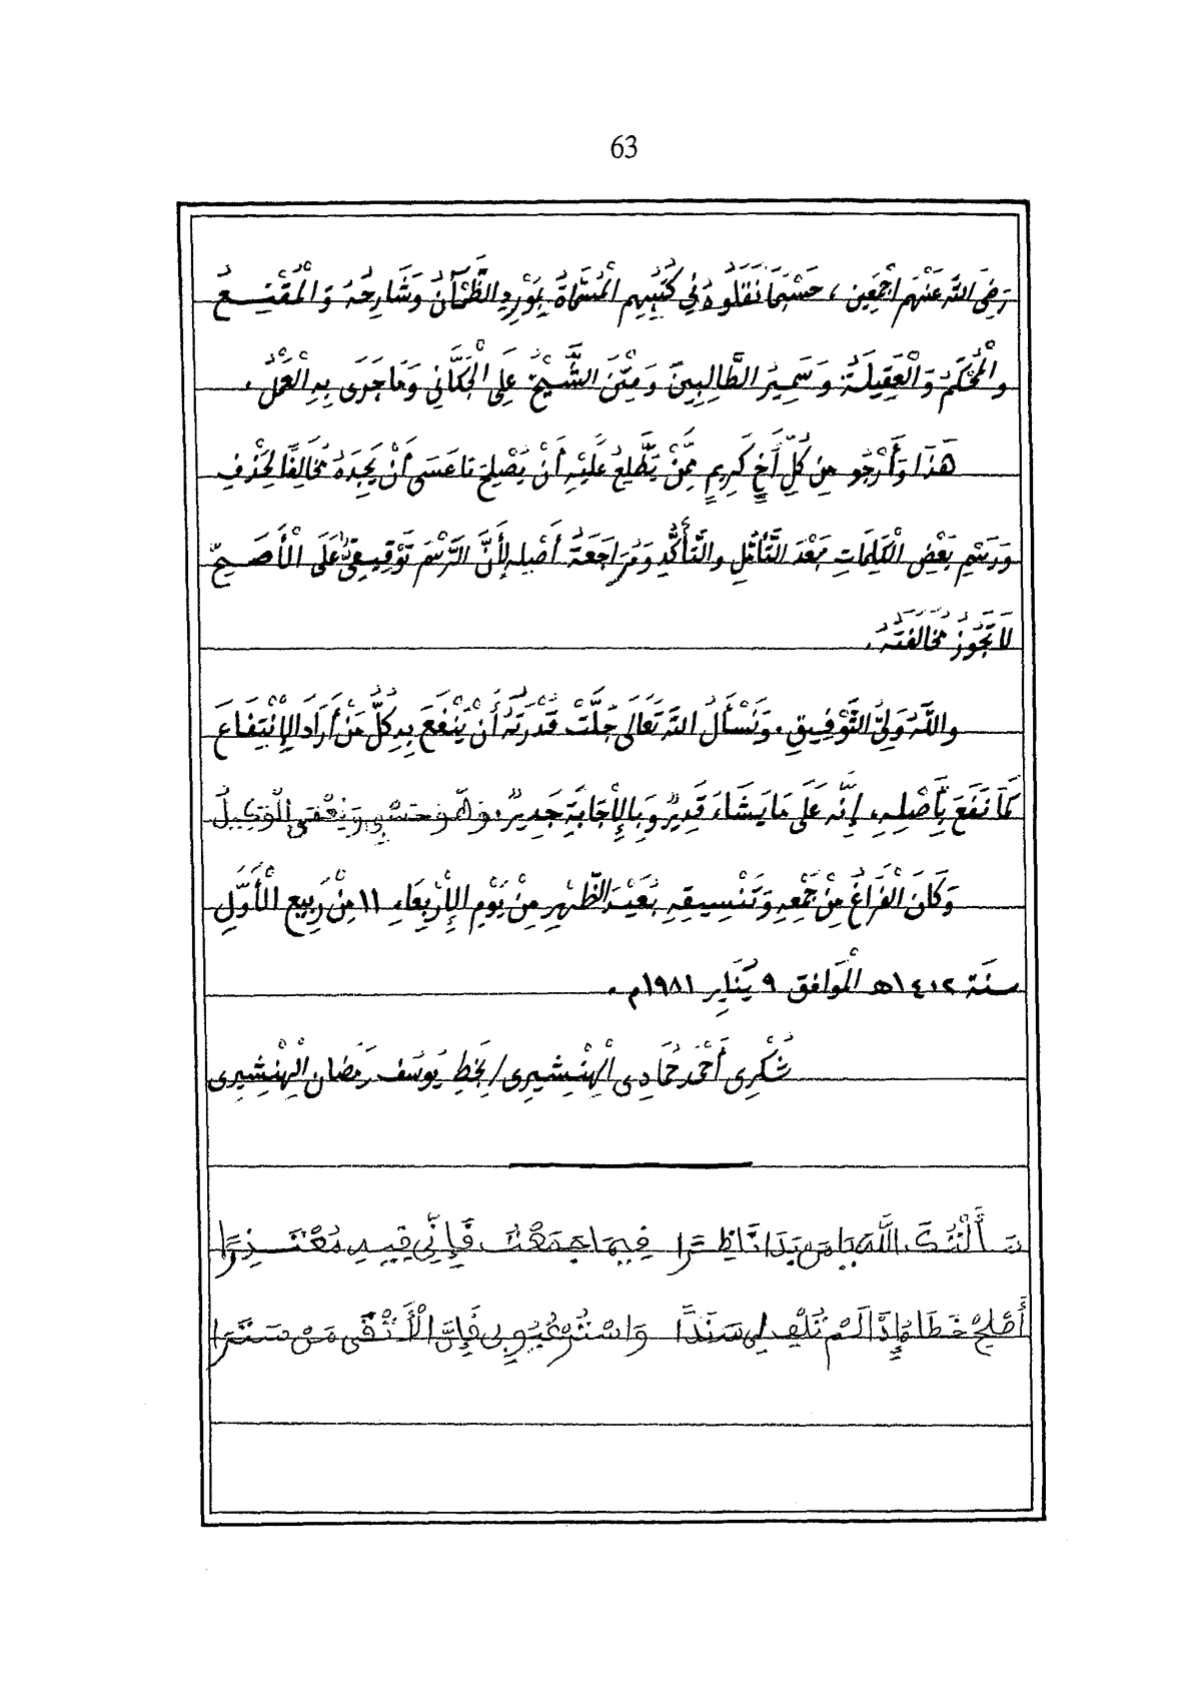 63
رَضِيَ اللَّه عَنْهُم أَجْمَعِين، حَسْبَمَا نَقَلُوهُ فِي كُتُبِهِم الْمُسَمَّاةُ بِمَوْرِدِ الظَّمْآنُ وَشَارِحُهُ وَالْمُقْنِعُ
والْمُحْكَمُ وَالْعَقِيلَةُ وَسَمِيرُ الطَّالِبِينَ وَمَتْنَ الشَّيْخُ عَلِى الْجَكَّانِي وَمَا جَرَى بِهِ الْعَمَلُ.
هَذَا وَأَرْجُو مِن كُلِّ أَخٍ كَرِيمٍ مِمَّنْ يَطَّلِعُ عَلَيْهِ أَنْ يُصْلِحَ مَا عَسَى أَنْ يَجِدَهُ مُخَالِفًا لِحَذْفِ
وَرَسْمِ بَعْضِ الْكَلِمَاتِ بَعْدَ التَّأَمُّلِ والتَّأَكُّدِ وَمُرَاجَعَةُ أَصْلِهِ لِأَنَّ الرَّسْمَ تَوْقِيفِيٌّ عَلَى الْأَصَحِّ
لَا تَجُوزُ مُخَالَفَتُهُ.
واللَّهُ وَلِيُّ التَّوْفِيقِ. وَنَسْأَلُ اللَّهَ تَعَالَى جَلَّتْ قُدْرَتُهُ أَنْ يَنْفَعَ بِهِ كُلَّ مَنْ أَرَادَ الْإِنْتِفَاعَ
كَمَا نَفَعَ بِأَصْلِهِ، إِنَّهُ عَلَى مَا يَشَاءُ قَدِيرٌ وَبِالْإِجَابَةِ جَدِيرٌ، وَهُوَ حَسْبِي وَنِعْمَ الْوَكِيلُ
وَكَانَ الْفَرَاغُ مِنْ جَمْعِهِ وَتَنْسِيقِهِ بُعَيْدَ الظُّهْرِ مِنْ يَوْمِ الْإِرْبِعَاءِ ١١ مِنْ رَبِيعِ الْأَوَّلِ
سنَة ١٤٠٢ه الْمُوَافق ٩ يَنَايِر ١٩٨١م.
شُكْرِى أَحْمَد حُمَادِى الْهِنْشِيرِى / بِخَطِ يُوسُف رَمَضَان الْهِنْشِيرِى
سَأَلْتُكَ اللَّهَ يَا مَن بَدَا نَاظِرًا فِيمَا جَمَعْتُ فَإِنِّي فِيهِ مُعْتَذِرًا
أَصْلِحْ خَطَاءً إِذَا لَمْ تُلْفِ لِي سَنَدًا وَاسْتُرْ عُيُوبِى فَإِنَّ الْأَتْقَى مَنْ سَتَرَا